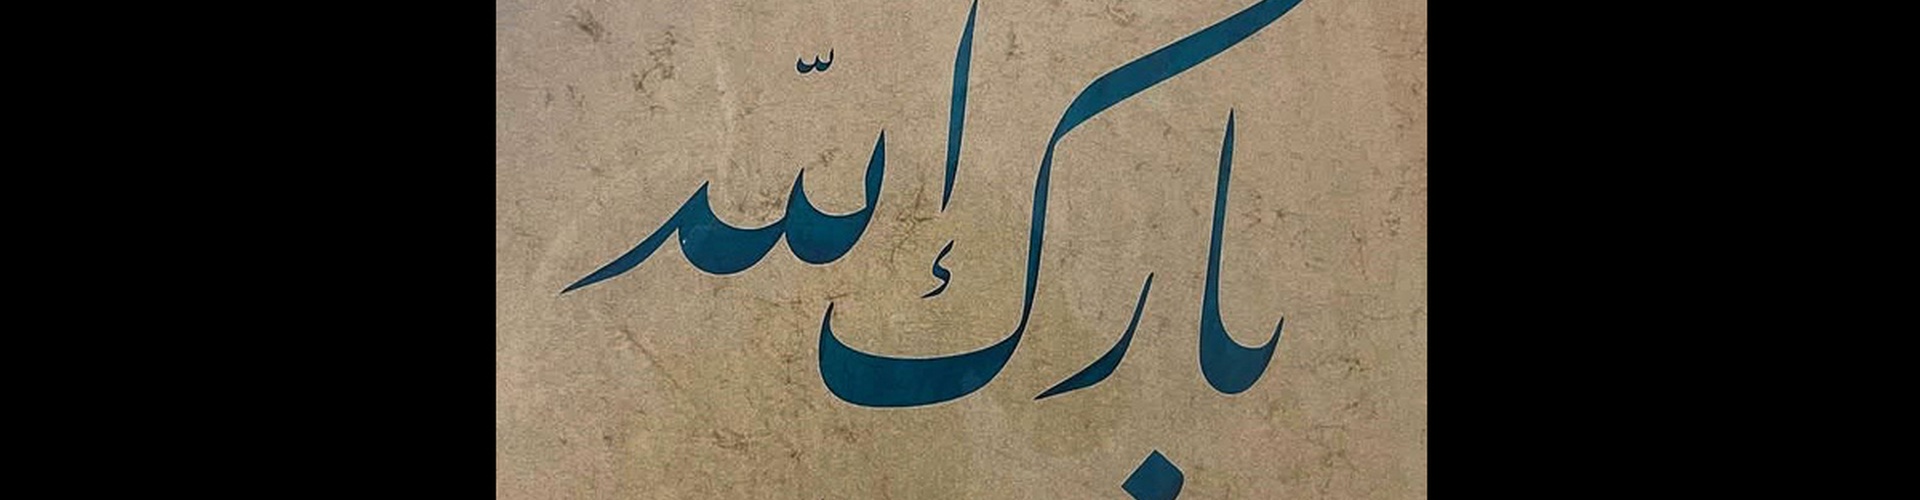 بارك الله